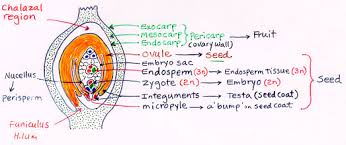 Chalazal
region
Exocarp
mesocarp → Pericarp → Fruit
Endocarp (ovary wall)
Ovule → Seed
Embryo sac
Endosperm (3n) → Endosperm Tissue (3n)
Zygote (2n) → Embryo (2n)
Integuments → Testa (seed coat)
micropyle → a 'bump' in seed coat
Seed
Nucellus
Perisperm
Funiculus
Hilum